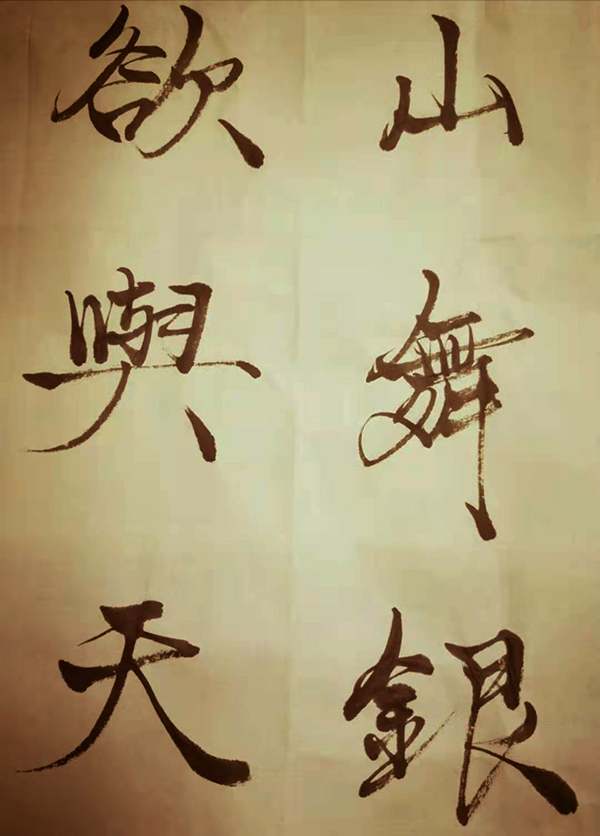 山舞銀
欲與天